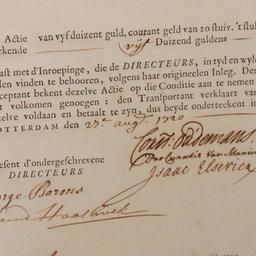 Actie van vyf duizent guld. courant geld van 20 stuiv. 't stu
kende vijf Duizend guldens
ast met d'Inroepinge, die de DIRECTEURS, in tyd en wyle
len vinden te behooren, volgens haar origineelen Inleg. Den
ceptant bekent dezelve Actie op die Conditie aan te nemen
t volkomen genoegen: den Transportant verklaart van
zelve voldaan en betaalt te zyn, dus beyde onderteekent in
OTTERDAM den 27 augt. 1720
Court. Oudemans
Isaac Elsevier
esent d'ondergeschrevene
DIRECTEURS
orge Barons